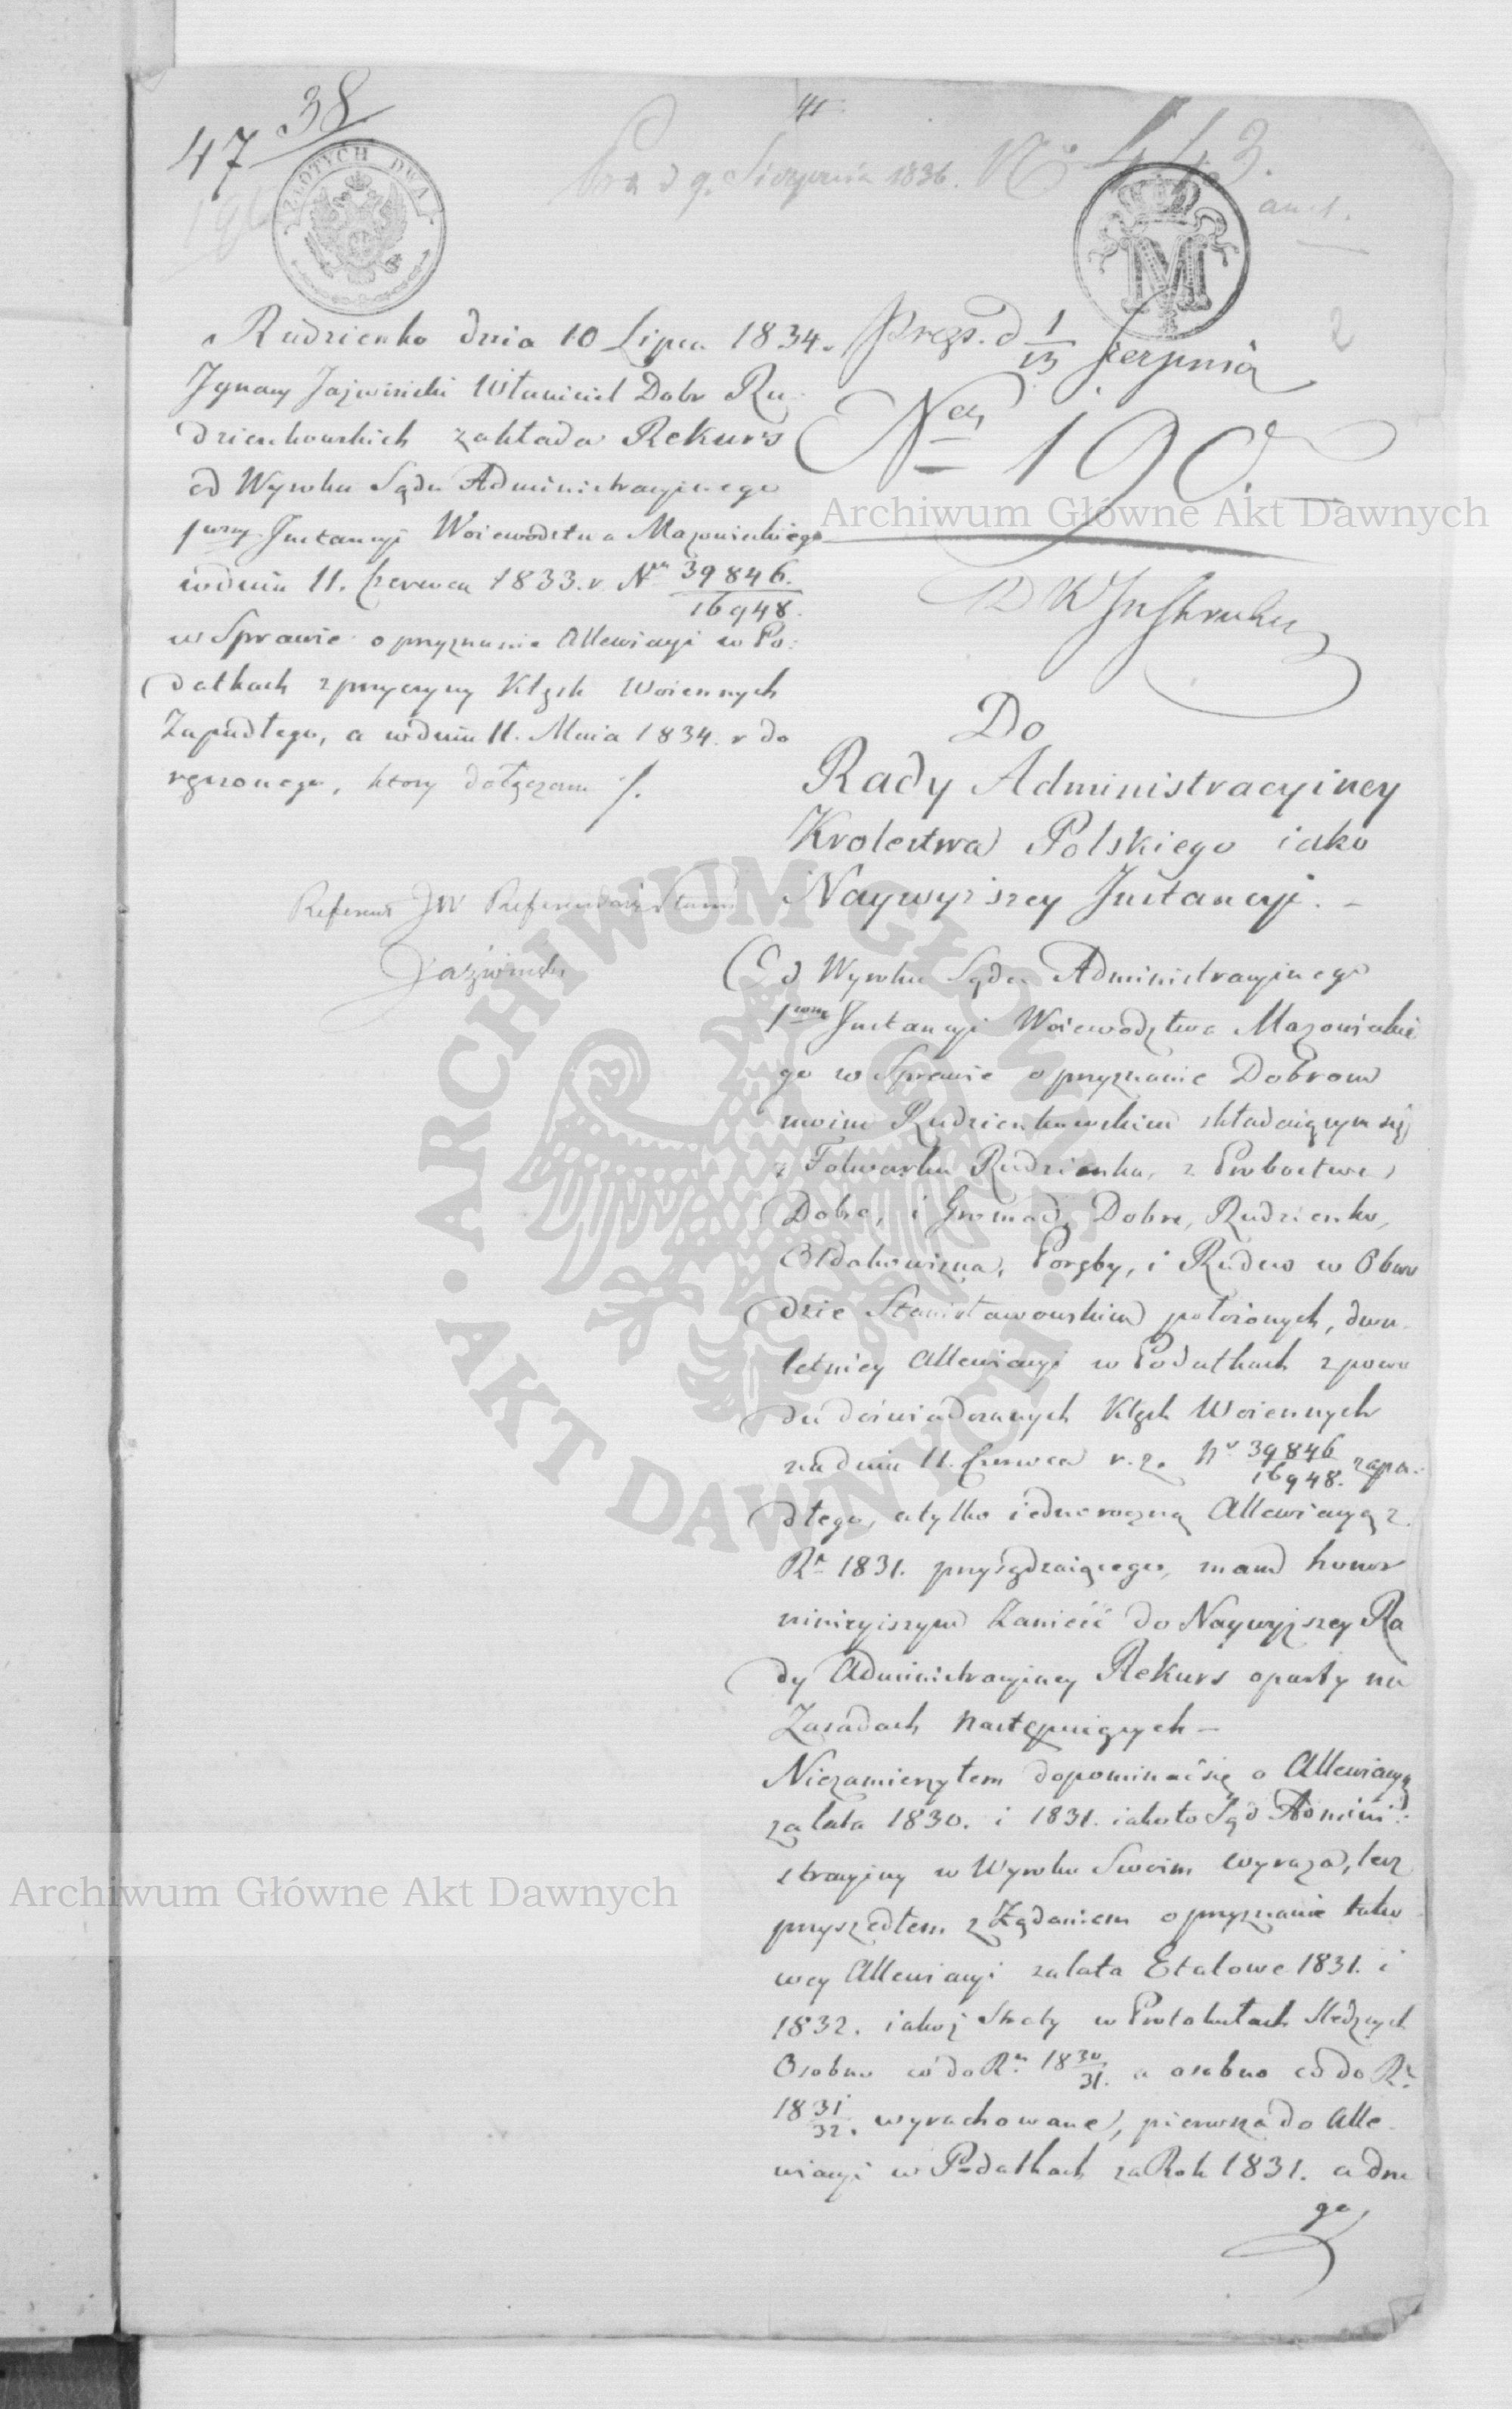 38
47
ZŁOTYCH DWA
9. Sierpnia 1836. No 443.
M
2
Rudzienko dnia 10 Lipca 1834.
Ignacy Jaźwiński Właściciel Dobr Ru-
dzienkowskich zakłada Rekurs
od Wyroku Sądu Administracyinego
1wszey Instancyi Woiewództwa Mazowieckiego
w dniu 11. Czerwca 1833. r. Nr 39846.
16948.
w Sprawie o przyznanie Allewiacyi w Po:
datkach z przyczyny Klęsk Woiennych
Zapadłego, a w dniu 11. Maia 1834. r do
ręczonego, ktory dołączam /.
Referent JW Referendarz Stanu
Jaźwiński
prez. d 1/13 Sierpnia
No 190.
Archiwum Główne Akt Dawnych
Do
Rady Administracyiney
Krolestwa Polskiego iako
Naywyższey Instancyi. -
Od Wyroku Sądu Administracyinego
1wszey Instancyi Woiewodztwa Mazowieckie
go w Sprawie o przyznanie Dobrom
moim Rudzienkowskim składaiącym się
z Folwarku Rudzienka, z Probostwa
Dobre, i Gromad, Dobre, Rudzienko,
Ołdakowizna, Poręby, i Rudno w Obwo
dzie Stanisławowskim położonych, dwu-
letniey Allewiacyi w Podatkach z powo
du doświadczanych Klęsk Woiennych
na dniu 11. Czerwca r. z. Nr 39846
16948. zapa:
dłego, a tylko iednoroczną Allewiacyą z
Ru 1831. przysądzaiącego, mam honor
ninieyszym Zanieść do Naywyższey Ra
dy Administracyiney Rekurs oparty na
Zasadach następuiących -
Niezamierzyłem dopominać się o Allewiacyą
za lata 1830. i 1831. iak to Sąd Admini:
stracyiny w Wyroku Swoim wyraza, lecz
przyszedłem z Żądaniem o przyznanie tako
wey Allewiacyi za lata Etatowe 1831. i
1832. iakoż Straty w Protokułach Sledczych
Osobno co do Ru 1830/31. a osobno co do Ru
1831/32. wyrachowane, pierwsza do Alle-
wiacyi w Podatkach za Rok 1831. a dru
ga,
ARCHIWUM GŁÓWNE · AKT DAWNYCH ·
Archiwum Główne Akt Dawnych